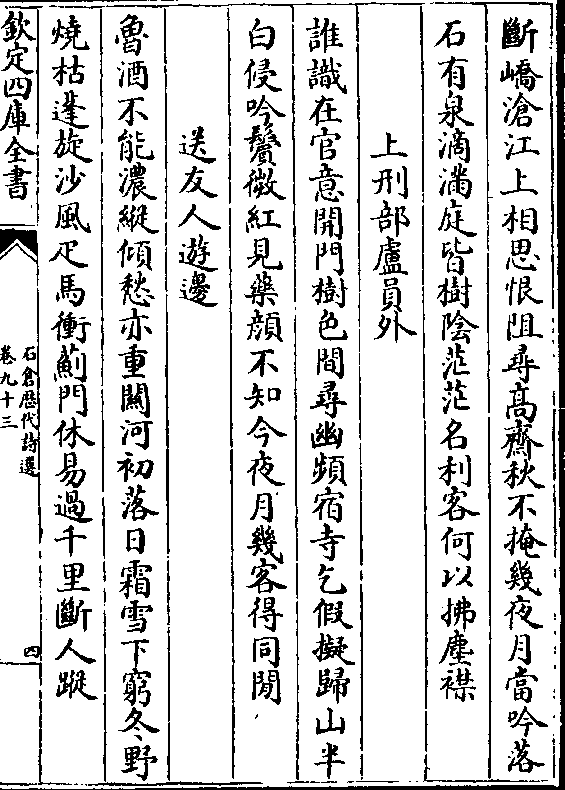 斷嶠滄江上相思恨阻尋高齋秋不掩幾夜月當吟落
石有泉滴滿庭皆樹陰茫茫名利客何以拂塵襟
上刑部盧員外
誰識在官意開門樹色間尋幽頻宿寺乞假擬歸山半
白侵吟鬢微紅見藥顔不知今夜月幾客得同閒
送友人遊邊
魯酒不能濃縱傾愁亦重關河初落日霜雪下窮冬野
燒枯蓬旋沙風疋馬衝薊門休易過千里斷人蹤
欽定四庫全書
石倉歷代詩選
卷九十三
四